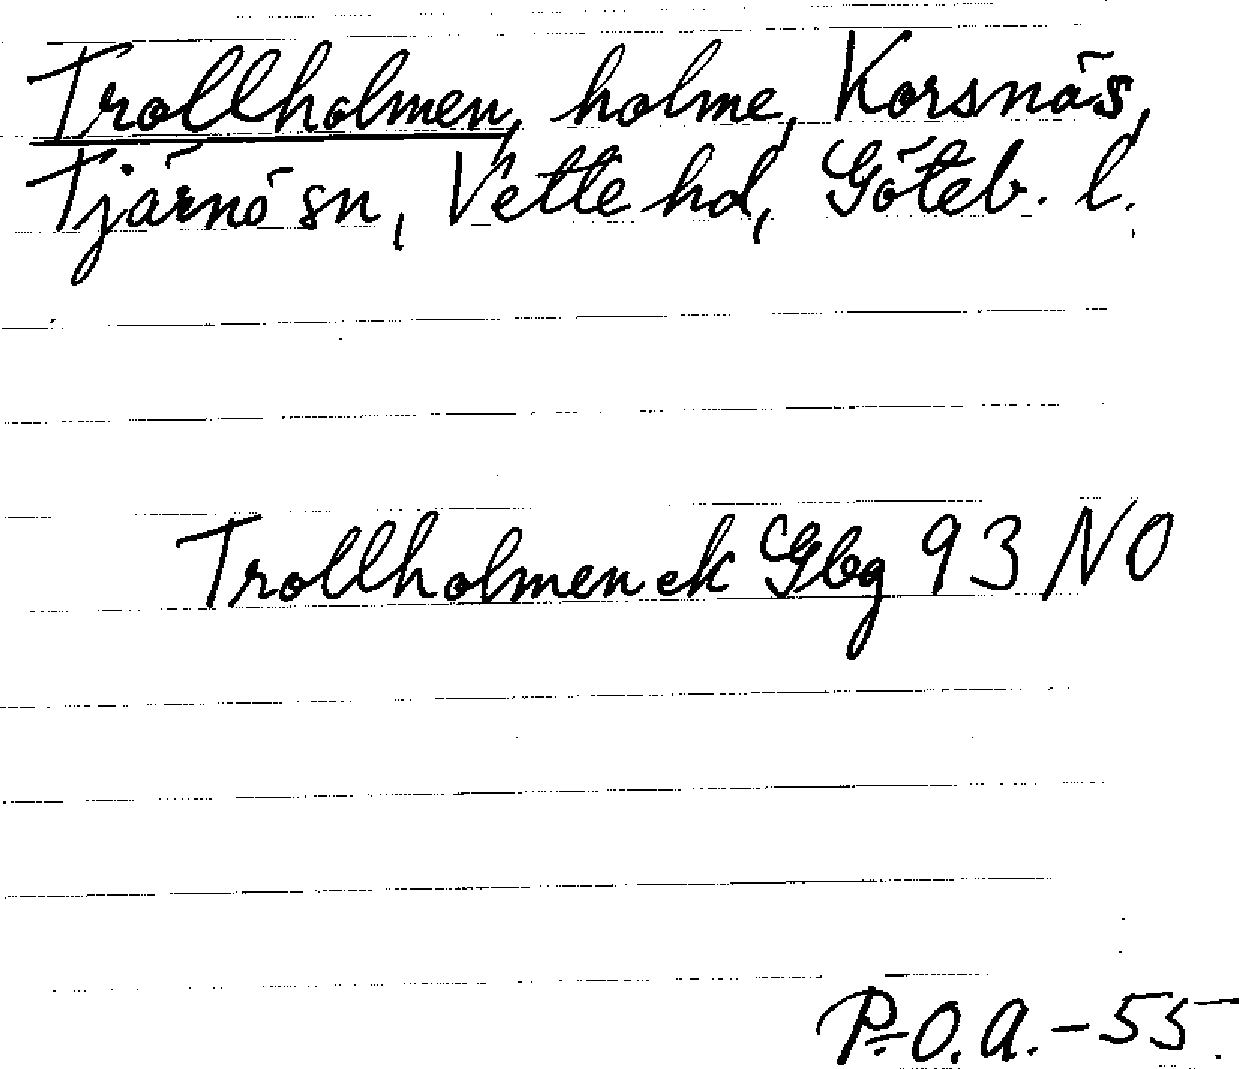 Trollholmen, holme, Korsnäs,
Tjärnö sn, Vette hd, Göteb. l.
Trollholmen ek Gbg 93 NO
P.-O. A. - 55.